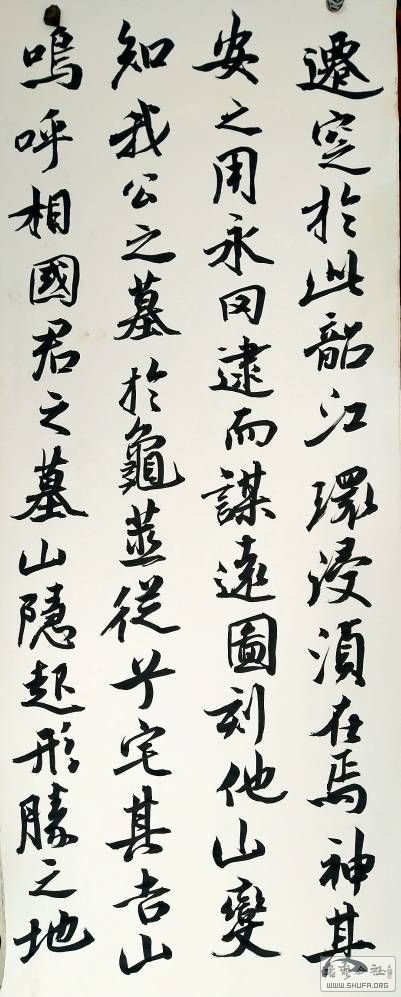 遷窆於此韶江環浸湏在焉神其
安之用永逮而謀遠圖刻他山變
知我公之墓於龜筮從兮宅其吉山
嗚呼相國君之墓山隱起形勝之地
WWW.SHUFA.ORG